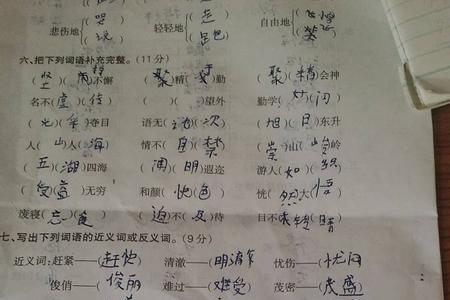 悲伤地 哭 说 轻轻地 走 自由地 飞 笑
六、把下列词语补充完整。(11分)
( 坚 )( 持 )不懈 ( )精( )勤 ( 聚 )( 精 )会神
名不( 虚 )( 传 ) ( )( )望外 勤学( )( 问 )
( 光 )( 彩 )夺目 语无( 伦 )( 次 ) ( 旭 )( 日 )东升
人( 山 )人( 海 ) 情不( 自 )( 禁 ) ( 崇 )山( )岭
( 五 )( 湖 )四海 ( )( 明 )遐迩 游人( 如 )( 织 )
( 受 )( 益 )无穷 和颜( 悦 )( 色 ) 恍( 然 )大( 悟 )
废寝( 忘 )( 食 ) ( 迫 )不( 及 )待 目不( )( 睛 )
七、写出下列词语的近义词或反义词。(9分)
近义词:赶紧——( 赶快 ) 清澈——( ) 忧伤——( 忧闷 )
俊俏——( 俊丽 ) 难过——( 难受 ) 茂密——( 茂盛 )